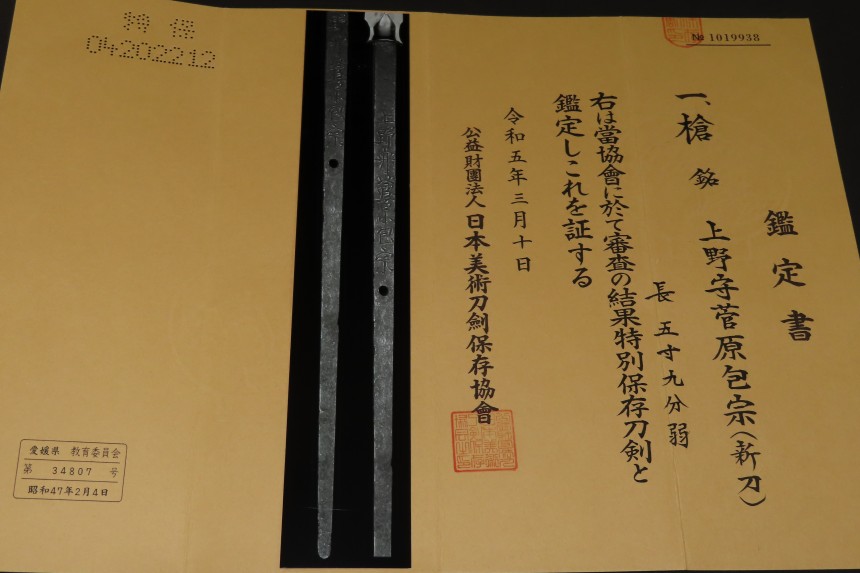 鑑定書
一、槍 銘 上野守菅原包宗(新刀)
長 五寸九分弱
右は當協會に於て審査の結果特別保存刀剣と
鑑定しこれを証する
令和五年三月十日
公益財團法人 日本美術刀劍保存協會
№ 1019938
特保
04202212
愛媛県 教育委員会
第 34807 号
昭和47年2月4日